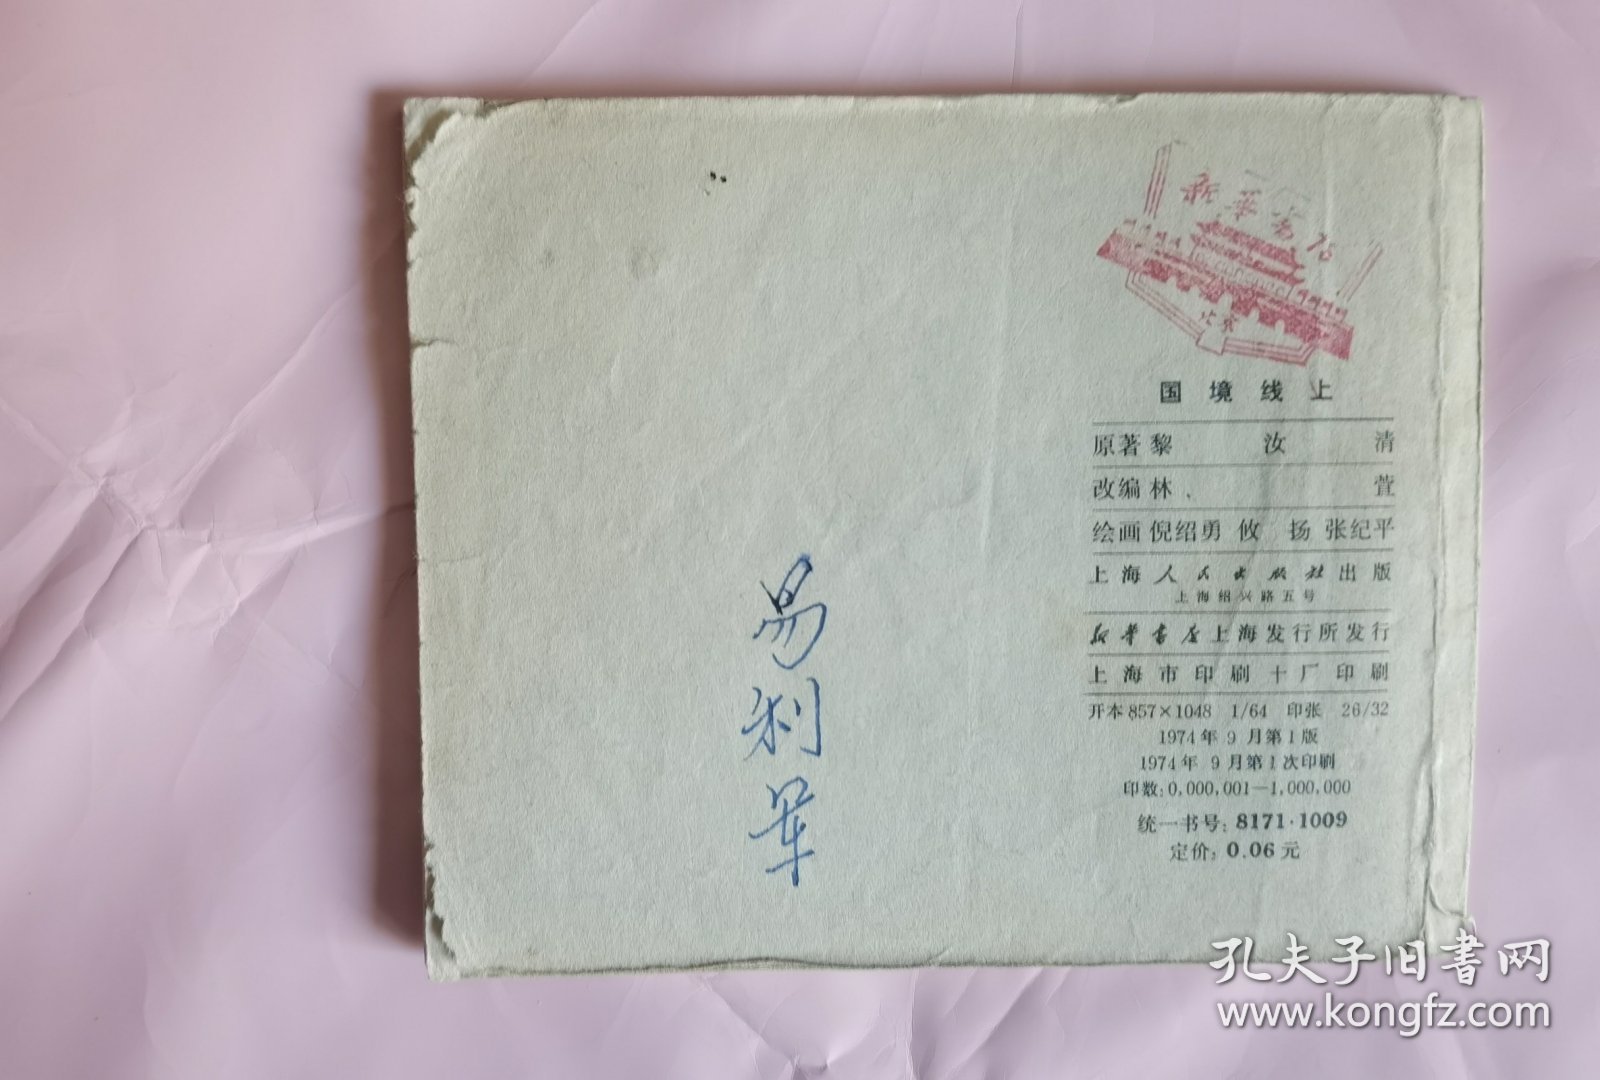 新华书店
北京
国境线上
原著 黎汝清
改编 林萱
绘画 倪绍勇 攸扬 张纪平
上海人民出版社出版
上海绍兴路五号
新华书店上海发行所发行
上海市印刷十厂印刷
开本 857×1048 1/64 印张 26/32
1974年9月第1版
1974年9月第1次印刷
印数:0,000,001—1,000,000
统一书号:8171·1009
定价:0.06元
易利军
孔夫子旧书网
www.kongfz.com